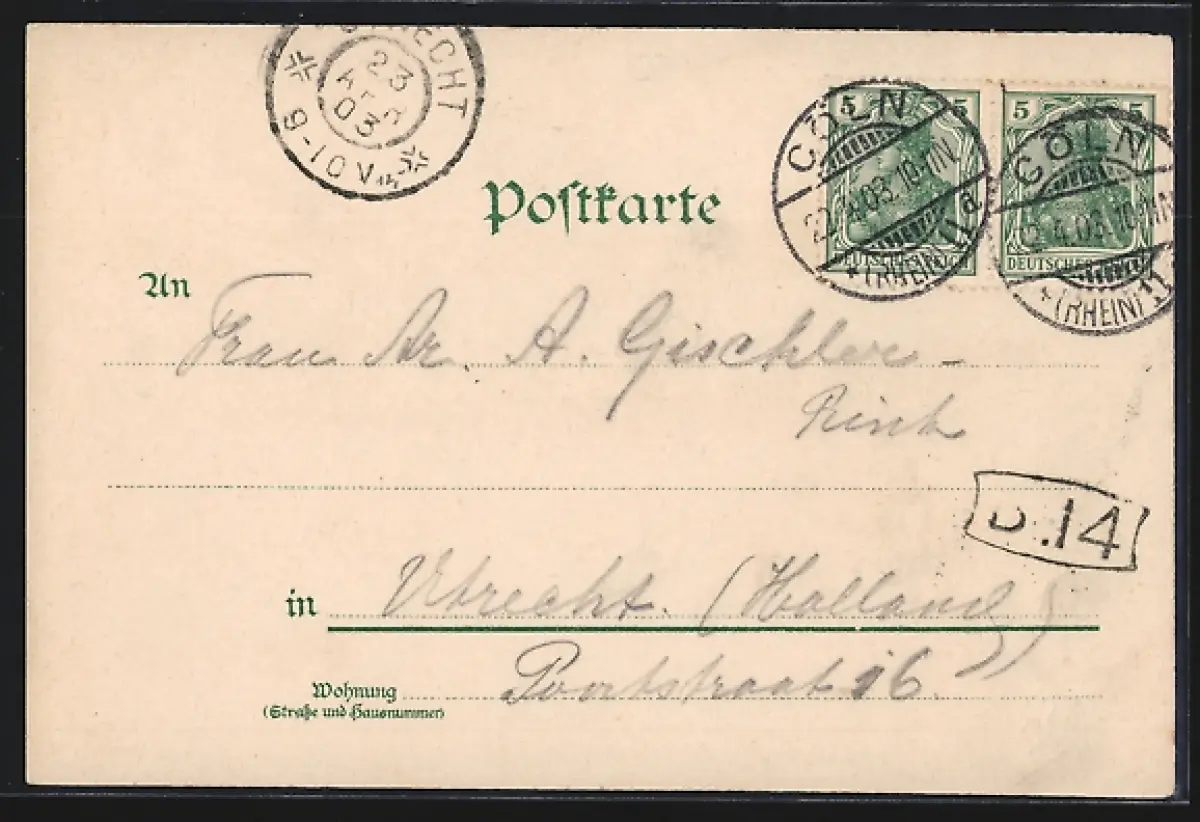 UTRECHT
23
APR
03
9-10 V
5 5
CÖLN
22.4.03.10-11N
(RHEIN) 1 a
DEUTSCHES REICH
5 5
CÖLN
22.4.03.10-11N
(RHEIN) 1
DEUTSCHES REICH
Postkarte
An
Frau Dr. A. Gischler-
Rink
14
in Utrecht. (Holland)
Wohnung Poortstraat 16.
(Straße und Hausnummer)